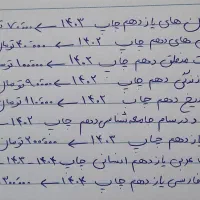 ن های یازدهم چاپ ۱۴۰۳ ← ۷۰۰۰
های دهم چاپ ۱۴۰۲ ← ۴۰،۰۰۰ تومان
منطق دهم چاپ ۱۴۰۲ ← ۱۰۰۰۰ تو
دهم چاپ ۱۴۰۲ ← ۹۰۰۰۰ تومان
یخ دهم چاپ ۱۴۰۲ ← ۱۱۰۰۰۰ تومان
درسنامه جامعه شناسی دهم چاپ ۱۴۰۲
ز دهم چاپ ۱۴۰۳ ← ۲۰۰۰۰۰ تومان
عربی یازدهم انسانی چاپ ۱۴۰۴-۱۴۰۳
فارسی یازدهم چاپ ۱۴۰۴ ← ۳۰۰۰۰۰